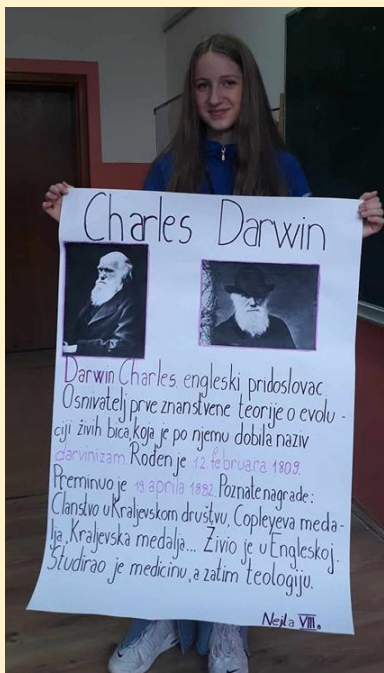 Charles Darwin
Darwin Charles, engleski pridoslovac
Osnivatelj prve znanstvene teorije o evolu-
ciji živih bića, koja je po njemu dobila naziv
darvinizam. Rođen je 12. februara 1809.
Preminuo je 19 aprila 1882. Poznate nagrade:
Članstvo u Kraljevskom društvu, Copleyeva meda-
lja, Kraljevska medalja... Živio je u Engleskoj.
Studirao je medicinu, a zatim teologiju.
Nejla VIIIa